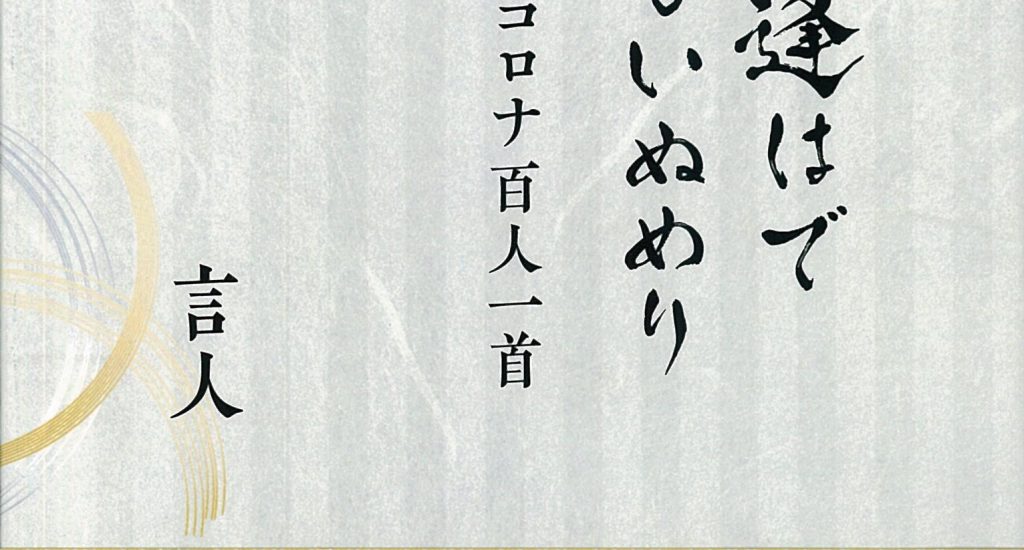 逢はで
いぬめり
コロナ百人一首
言人